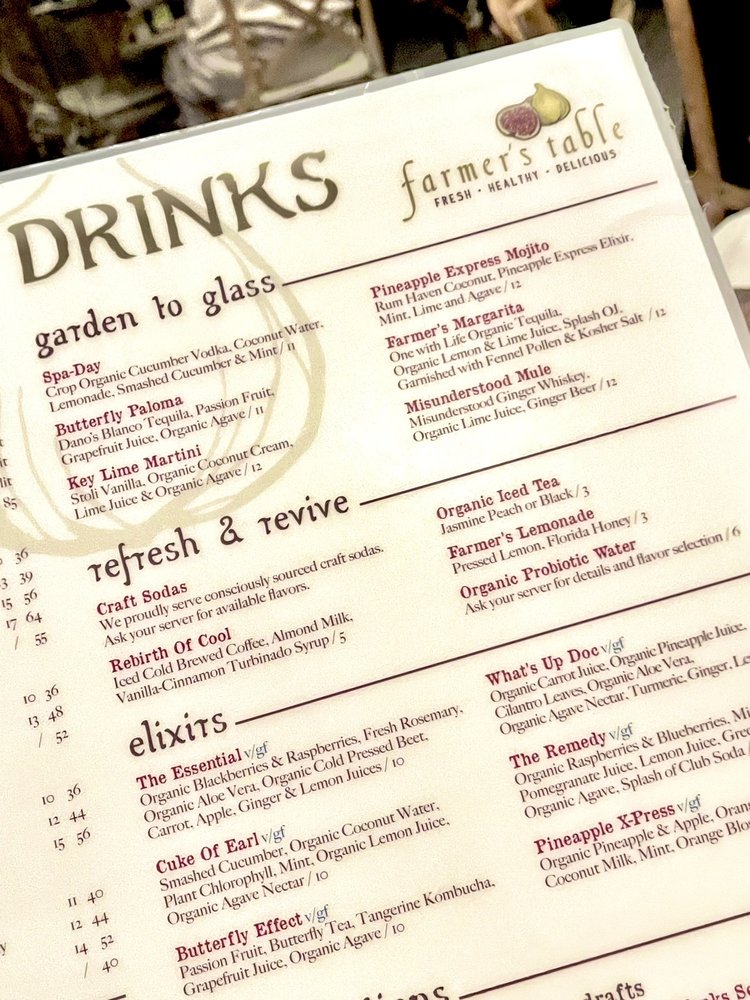 DRINKS
farmer's table
FRESH · HEALTHY · DELICIOUS
garden to glass
Spa-Day
Crop Organic Cucumber Vodka, Coconut Water,
Lemonade, Smashed Cucumber & Mint / 11
Butterfly Paloma
Dano's Blanco Tequila, Passion Fruit,
Grapefruit Juice, Organic Agave / 11
Key Lime Martini
Stoli Vanilla, Organic Coconut Cream,
Lime Juice & Organic Agave / 12
Pineapple Express Mojito
Rum Haven Coconut, Pineapple Express Elixir,
Mint, Lime and Agave / 12
Farmer's Margarita
One with Life Organic Tequila,
Organic Lemon & Lime Juice, Splash OJ.
Garnished with Fennel Pollen & Kosher Salt / 12
Misunderstood Mule
Misunderstood Ginger Whiskey,
Organic Lime Juice, Ginger Beer / 12
refresh & revive
Craft Sodas
We proudly serve consciously sourced craft sodas.
Ask your server for available flavors.
Rebirth Of Cool
Iced Cold Brewed Coffee, Almond Milk,
Vanilla-Cinnamon Turbinado Syrup / 5
Organic Iced Tea
Jasmine Peach or Black / 3
Farmer's Lemonade
Pressed Lemon, Florida Honey / 3
Organic Probiotic Water
Ask your server for details and flavor selection / 6
elixirs
The Essential v/gf
Organic Blackberries & Raspberries, Fresh Rosemary,
Organic Aloe Vera, Organic Cold Pressed Beet,
Carrot, Apple, Ginger & Lemon Juices / 10
Cuke Of Earl v/gf
Smashed Cucumber, Organic Coconut Water,
Plant Chlorophyll, Mint, Organic Lemon Juice,
Organic Agave Nectar / 10
Butterfly Effect v/gf
Passion Fruit, Butterfly Tea, Tangerine Kombucha,
Grapefruit Juice, Organic Agave / 10
What's Up Doc v/gf
Organic Carrot Juice, Organic Pineapple Juice,
Cilantro Leaves, Organic Aloe Vera,
Organic Agave Nectar, Turmeric, Ginger,
The Remedy v/gf
Organic Raspberries & Blueberries,
Pomegranate Juice, Lemon Juice,
Organic Agave, Splash of Club Soda /
Pineapple X-Press v/gf
Organic Pineapple & Apple,
Coconut Milk, Mint, Orange
85
36
39
15 56
17 64
/ 55
10 36
13 48
/ 52
10 36
12 44
15 56
11 40
12 44
14 52
/ 40
drafts